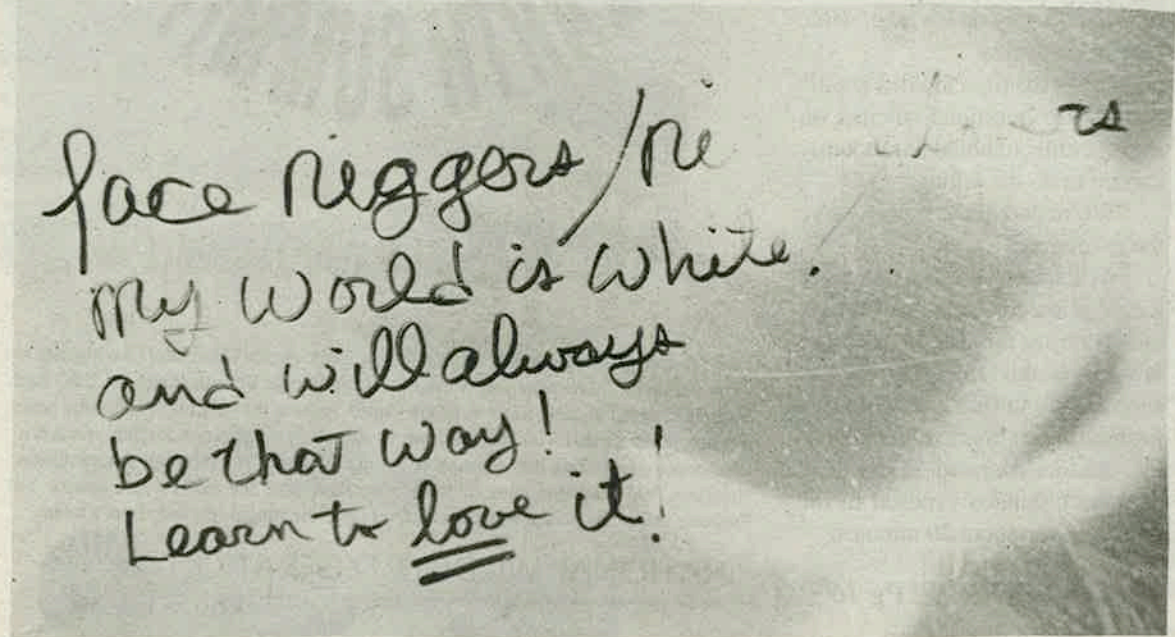 face niggers/
my world is white.
and will always
be that way!
Learn to love it!